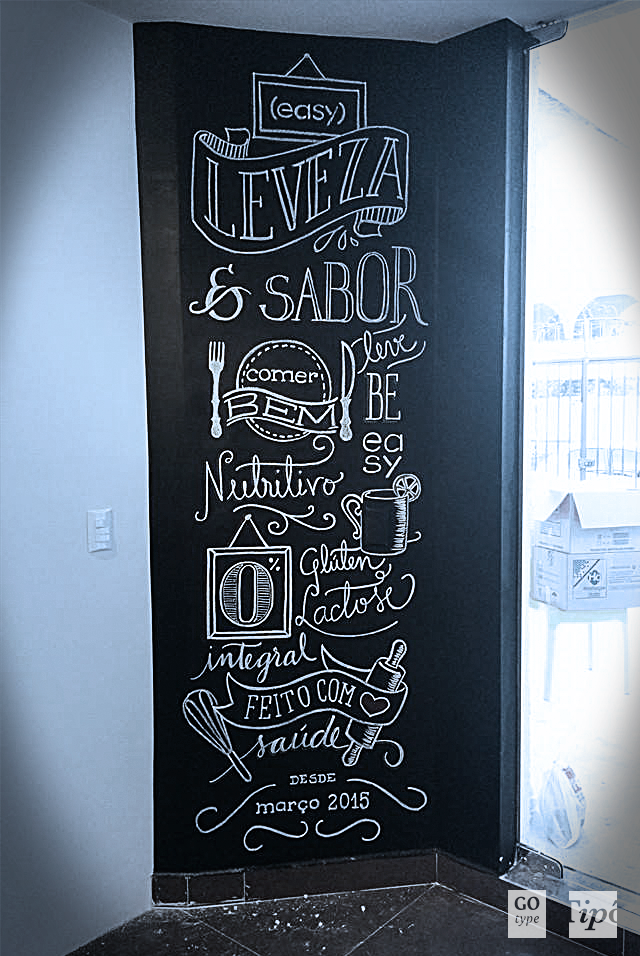 (easy)
LEVEZA
& SABOR
comer
BEM
leve
BE
ea
sy
Nutritivo
0%
Glúten
Lactose
integral
FEITO COM
saúde
DESDE
março 2015
GO
type
Tipó